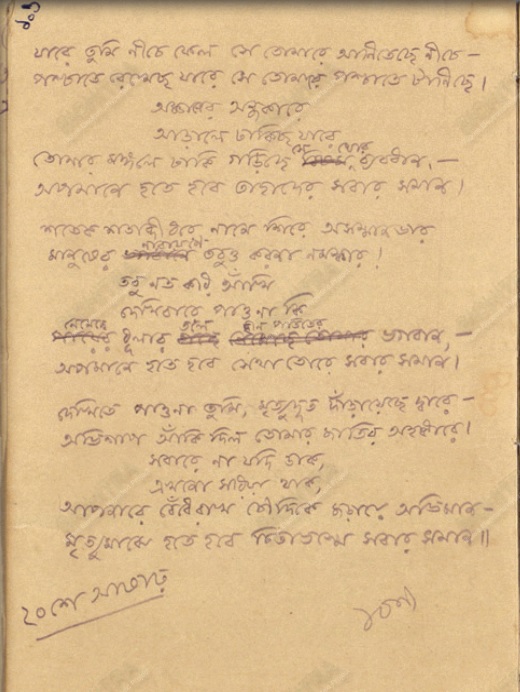 যারে তুমি নীচে ফেল সে তোমারে নীচে—
পশ্চাতে রেখেছ যারে সে তোমারে পশ্চাতে টানিছে।
অজ্ঞানের অন্ধকারে
আড়ালে ঢাকিছ যারে
তোমার মঙ্গল ঢাকি গড়িছে সে ঘোর ব্যবধান,—
অপমানে হতে হবে তাহাদের সবার সমান।
শতেক শতাব্দী ধরে নামে শিরে অসম্মানভার
মানুষের নারায়ণে তবুও করনা নমস্কার!
তবু নত করি আঁখি
দেখিবারে পাওনা কি
নেমেছে ধূলার তলে হীন পতিতের ভগবান,—
অপমানে হতে হবে সেথা তোরে সবার সমান।
দেখিতে পাওনা তুমি, মৃত্যুদূত দাঁড়ায়েছে দ্বারে—
অভিশাপ আঁকি দিল তোমার জাতির অহঙ্কারে।
সবারে না যদি ডাক,
এখনো সরিয়া থাক,
আপনারে বেঁধে রাখ চৌদিকে জড়ায়ে অভিমান—
মৃত্যুমাঝে হতে হবে চিতাভস্মে সবার সমান॥
২০শে আষাঢ়